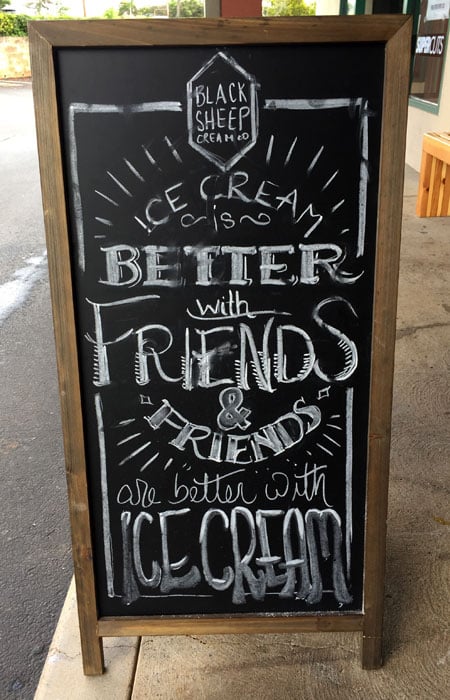 BLACK
SHEEP
CREAM CO
ICE CREAM
is
BETTER
with
FRIENDS
&
FRIENDS
are better with
ICE CREAM
SUPERCUTS